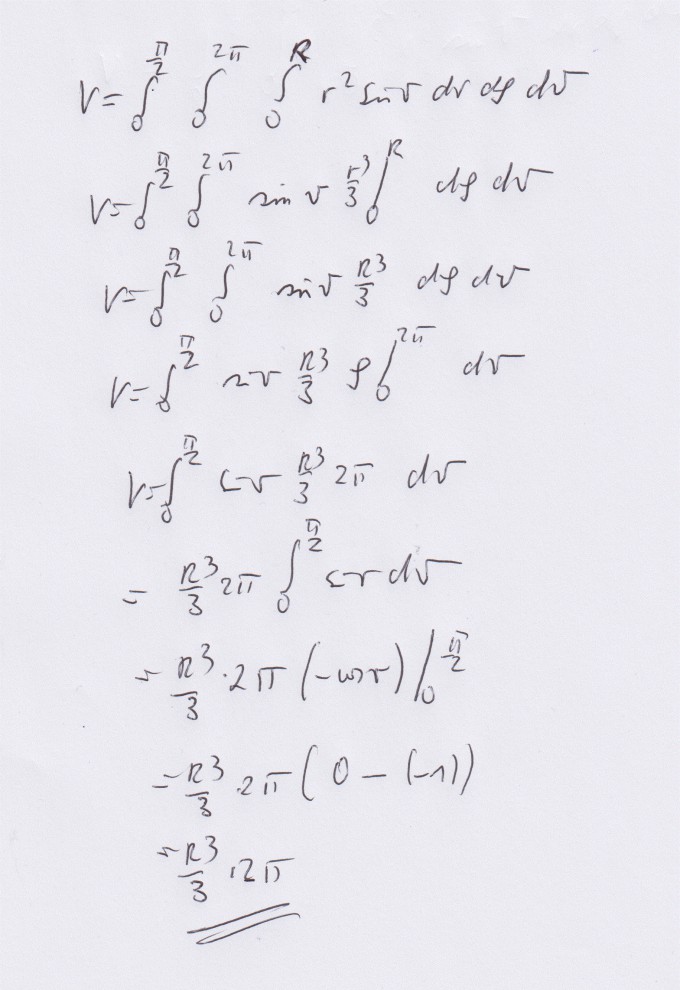 V = ∫₀^(π/2) ∫₀^(2π) ∫₀^R r² sin ϑ dr dφ dϑ
V = ∫₀^(π/2) ∫₀^(2π) sin ϑ r³/3 |₀^R dφ dϑ
V = ∫₀^(π/2) ∫₀^(2π) sin ϑ R³/3 dφ dϑ
V = ∫₀^(π/2) sin ϑ R³/3 φ |₀^(2π) dϑ
V = ∫₀^(π/2) sin ϑ R³/3 2π dϑ
= R³/3 2π ∫₀^(π/2) sin ϑ dϑ
= R³/3 · 2π (-cos ϑ) |₀^(π/2)
= R³/3 · 2π (0 - (-1))
= R³/3 · 2π